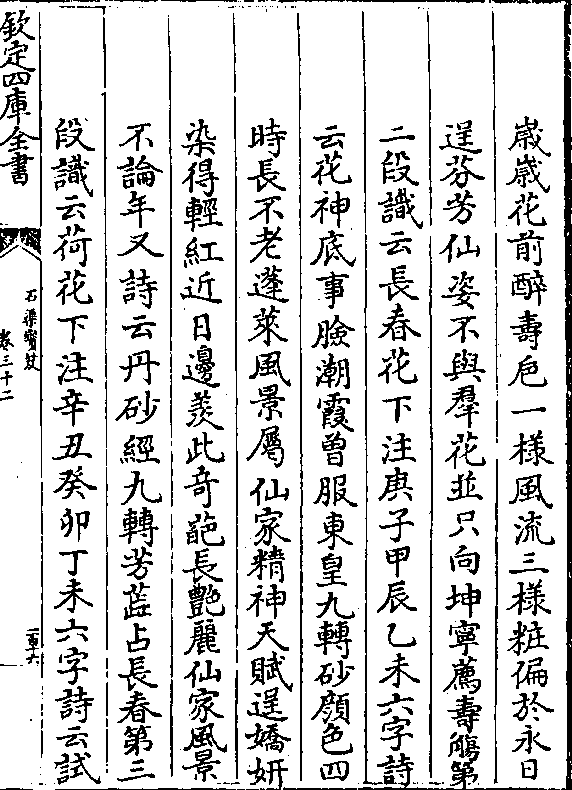 歲歲花前醉壽巵一樣風流三樣粧偏於永日
逞芬芳仙姿不與羣花並只向坤寧薦壽觴第
二段識云長春花下注庚子甲辰乙未六字詩
云花神底事臉潮霞曽服東皇九轉砂顔色四
時長不老蓬萊風景屬仙家精神天賦逞嬌妍
染得輕紅近日邊羨此竒葩長艷麗仙家風景
不論年又詩云丹砂經九轉芳蕋占長春第三
段識云荷花下注辛丑癸卯丁未六字詩云試
欽定四庫全書
石渠寳笈
卷三十二